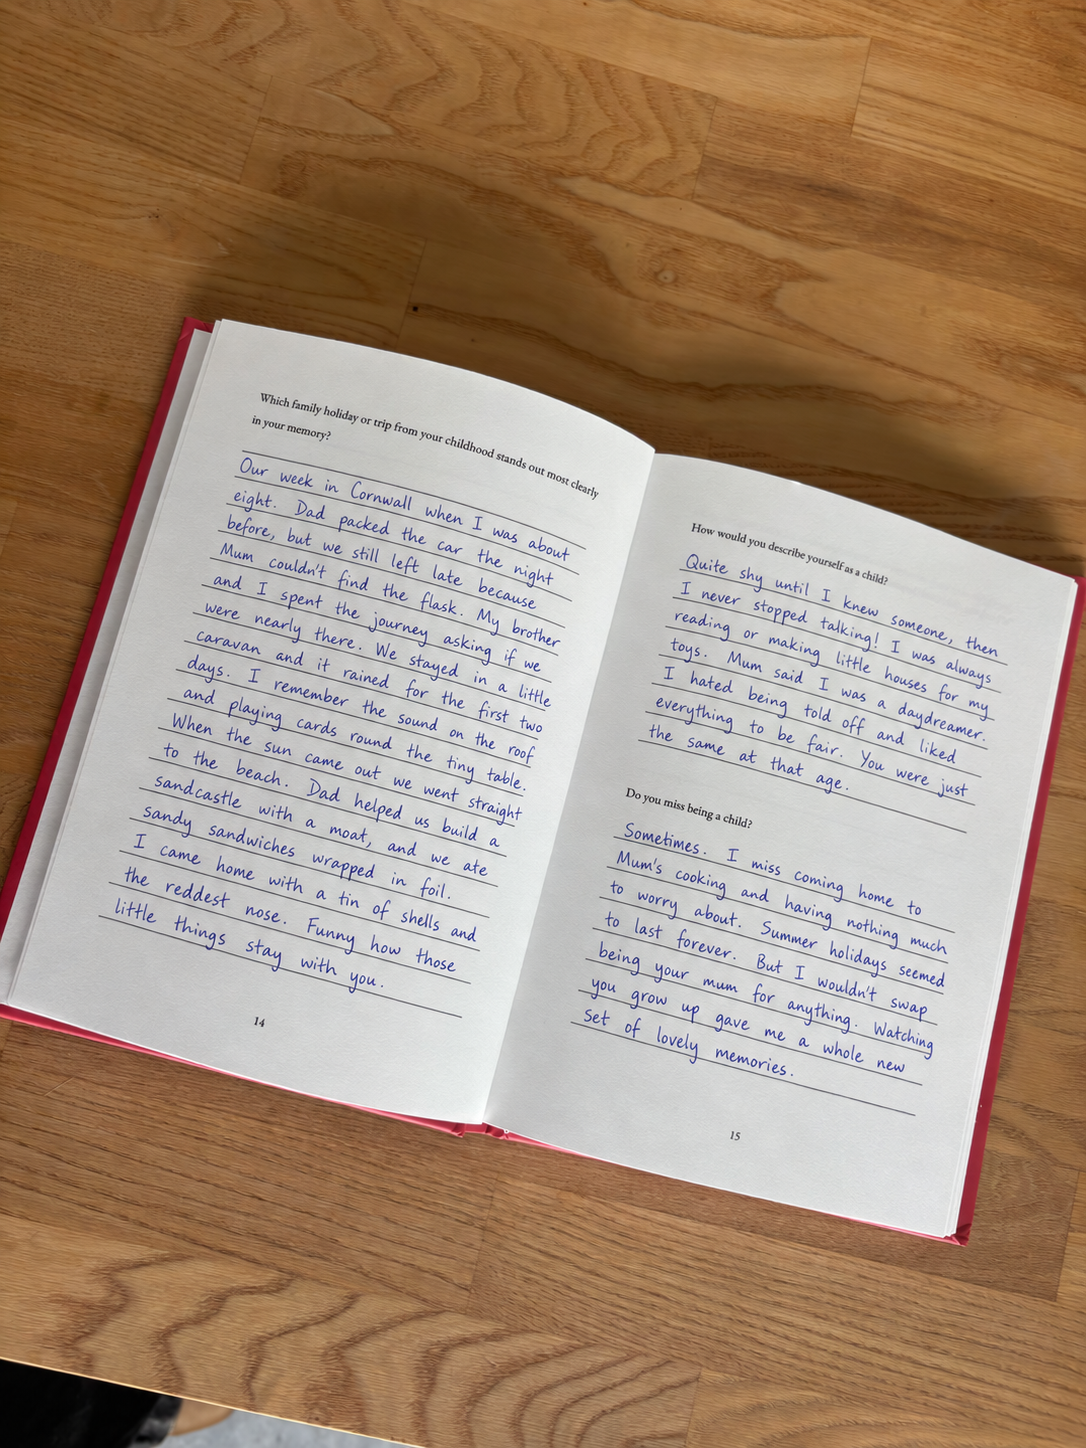 Which family holiday or trip from your childhood stands out most clearly
in your memory?
Our week in Cornwall when I was about
eight. Dad packed the car the night
before, but we still left late because
Mum couldn't find the flask. My brother
and I spent the journey asking if we
were nearly there. We stayed in a little
caravan and it rained for the first two
days. I remember the sound on the roof
and playing cards round the tiny table.
When the sun came out we went straight
to the beach. Dad helped us build a
sandcastle with a moat, and we ate
sandy sandwiches wrapped in foil.
I came home with a tin of shells and
the reddest nose. Funny how those
little things stay with you.
14
How would you describe yourself as a child?
Quite shy until I knew someone, then
I never stopped talking! I was always
reading or making little houses for my
toys. Mum said I was a daydreamer.
I hated being told off and liked
everything to be fair. You were just
the same at that age.
Do you miss being a child?
Sometimes. I miss coming home to
Mum's cooking and having nothing much
to worry about. Summer holidays seemed
to last forever. But I wouldn't swap
being your mum for anything. Watching
you grow up gave me a whole new
set of lovely memories.
15